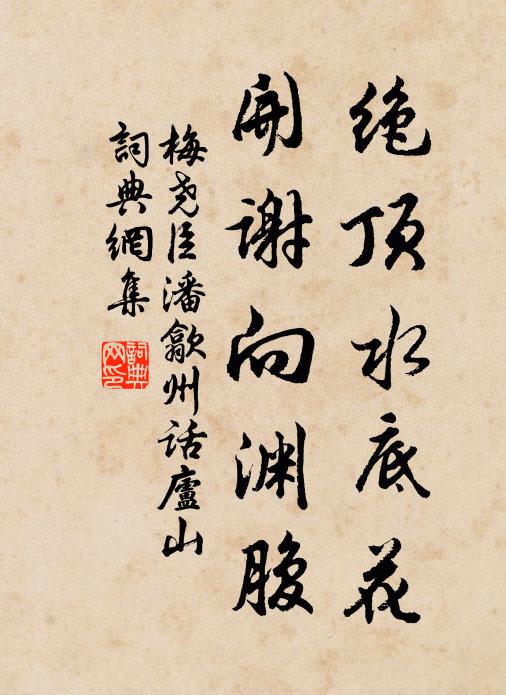 绝顶水底花
開谢向渊腹
梅尧臣潘歙州话廬山
詞典網集
詞典
网印